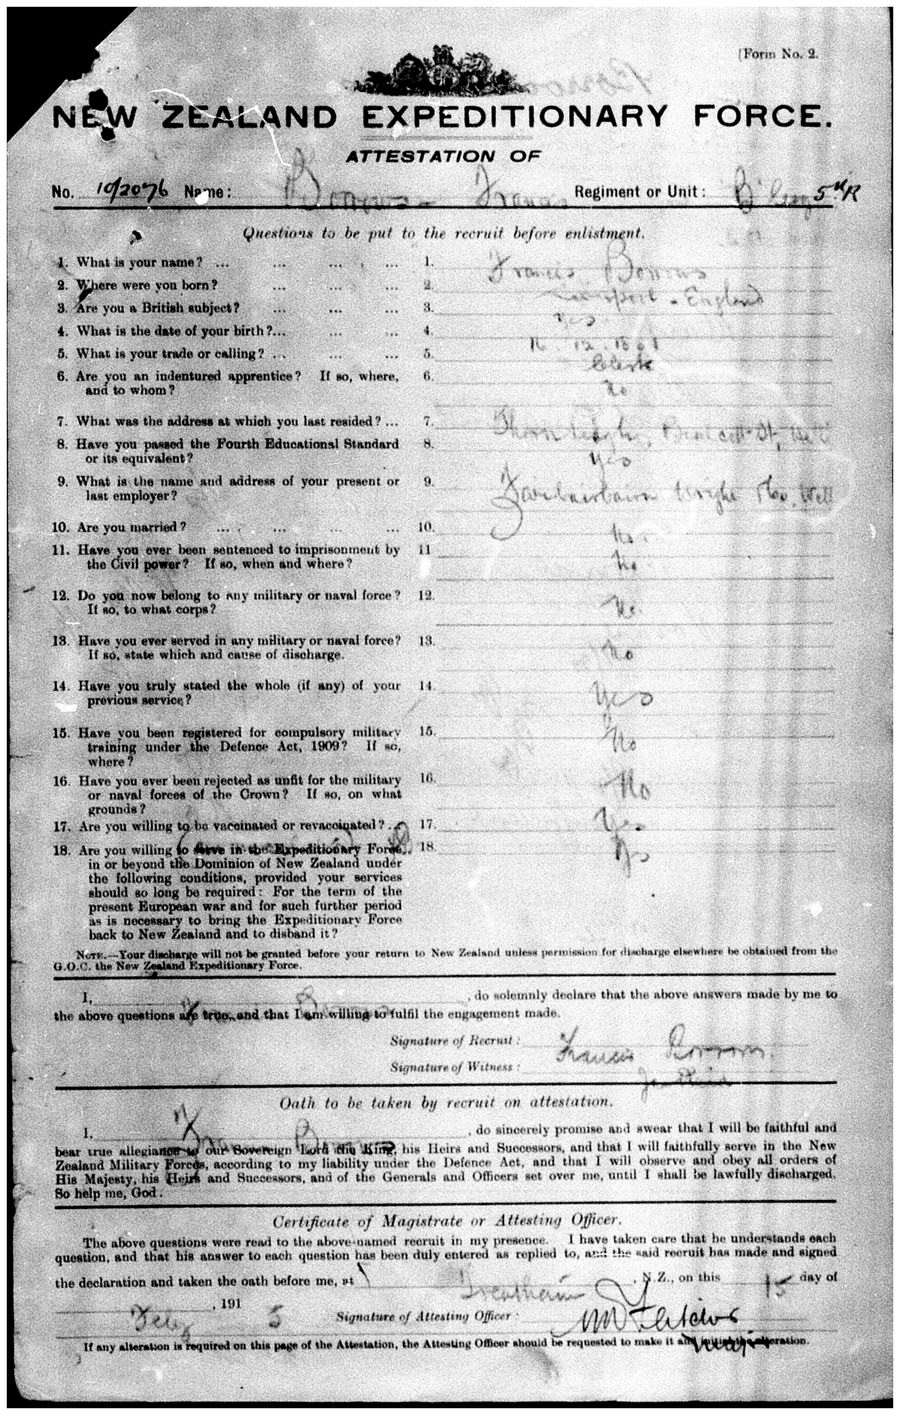 [Form No. 2.
NEW ZEALAND EXPEDITIONARY FORCE.
ATTESTATION OF
No. 10/2076 Name: Borrows Francis Regiment or Unit: B 5th R
Questions to be put to the recruit before enlistment.
1. What is your name? ... ... ... ... 1. Francis Borrows
2. Where were you born? ... ... 2. England
3. Are you a British subject? ... ... 3. Yes
4. What is the date of your birth?... ... ... 4. 16. 12.
5. What is your trade or calling? ... ... ... 5. Clerk
6. Are you an indentured apprentice? If so, where, 6. No
and to whom?
7. What was the address at which you last resided? ... 7. St,
8. Have you passed the Fourth Educational Standard 8. Yes
or its equivalent?
9. What is the name and address of your present or 9. Wright Well
last employer?
10. Are you married? ... ... ... 10. No.
11. Have you ever been sentenced to imprisonment by 11 No
the Civil power? If so, when and where?
12. Do you now belong to any military or naval force? 12. No.
If so, to what corps?
13. Have you ever served in any military or naval force? 13. No
If so, state which and cause of discharge.
14. Have you truly stated the whole (if any) of your 14. Yes
previous service?
15. Have you been registered for compulsory military 15. No
training under the Defence Act, 1909? If so,
where?
16. Have you ever been rejected as unfit for the military 16. No
or naval forces of the Crown? If so, on what
grounds?
17. Are you willing to be vaccinated or revaccinated? ... 17. Yes.
18. Are you willing to serve in the Expeditionary Force, 18. Yes
in or beyond the Dominion of New Zealand under
the following conditions, provided your services
should so long be required: For the term of the
present European war and for such further period
as is necessary to bring the Expeditionary Force
back to New Zealand and to disband it?
NOTE.—Your discharge will not be granted before your return to New Zealand unless permission for discharge elsewhere be obtained from the
G.O.C. the New Zealand Expeditionary Force.
I, Francis Borrows, do solemnly declare that the above answers made by me to
the above questions are true, and that I am willing to fulfil the engagement made.
Signature of Recruit: Francis Borrows.
Signature of Witness:
Oath to be taken by recruit on attestation.
I, Francis Borrows, do sincerely promise and swear that I will be faithful and
bear true allegiance to our Sovereign Lord the King, his Heirs and Successors, and that I will faithfully serve in the New
Zealand Military Forces, according to my liability under the Defence Act, and that I will observe and obey all orders of
His Majesty, his Heirs and Successors, and of the Generals and Officers set over me, until I shall be lawfully discharged.
So help me, God.
Certificate of Magistrate or Attesting Officer.
The above questions were read to the above-named recruit in my presence. I have taken care that he understands each
question, and that his answer to each question has been duly entered as replied to, and the said recruit has made and signed
the declaration and taken the oath before me, at Trentham, N.Z., on this 15 day of
Feby, 1915 Signature of Attesting Officer: Fletcher
If any alteration is required on this page of the Attestation, the Attesting Officer should be requested to make it and initial the alteration.